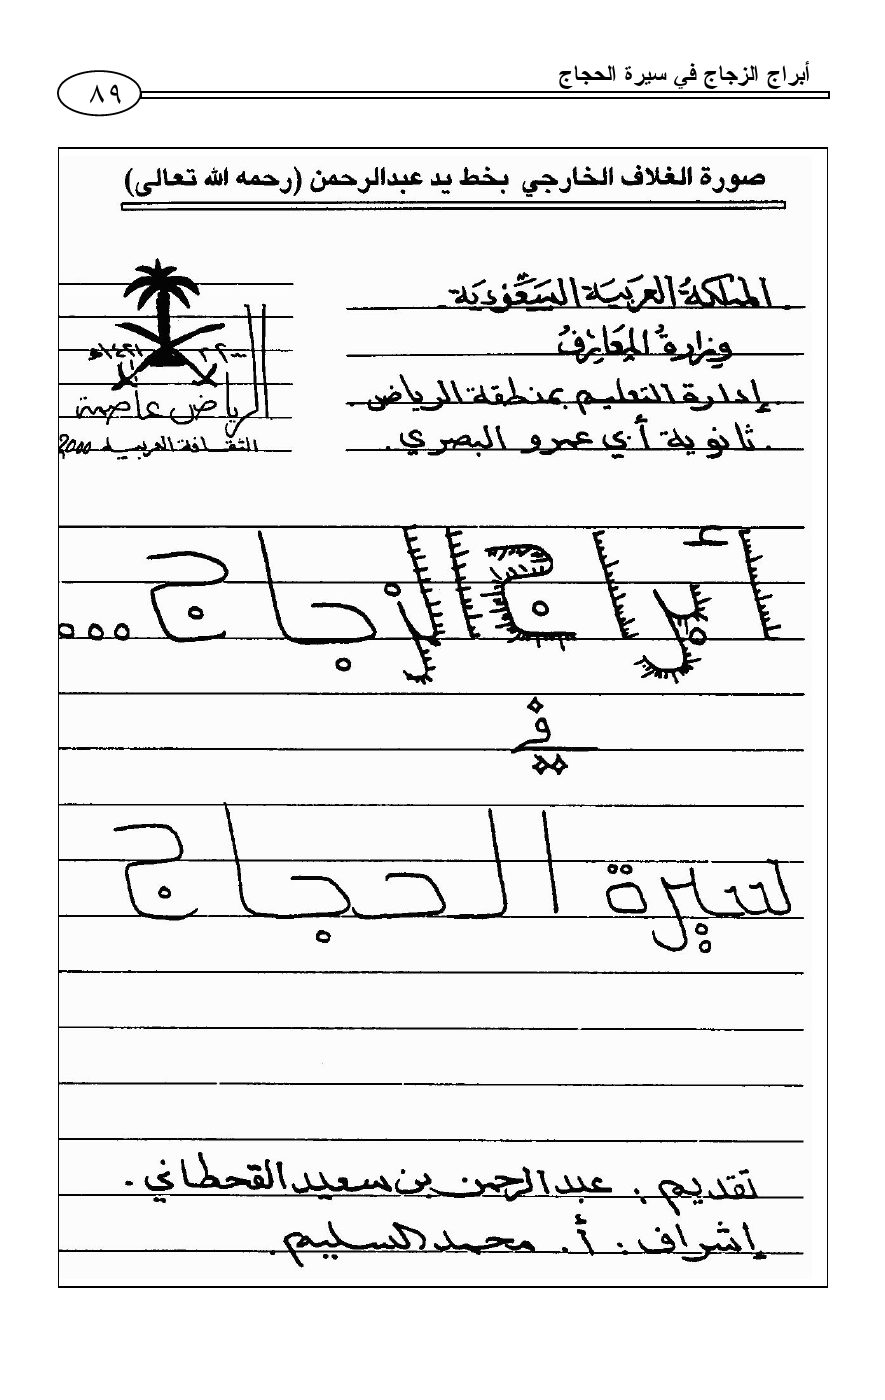 أبراج الزجاج في سيرة الحجاج
٨٩
صورة الغلاف الخارجي بخط يد عبدالرحمن (رحمه الله تعالى)
المملكة العربية السعودية.
وزارة المعارف
إدارة التعليم بمنطقة الرياض
ثانوية أبي عمرو البصري.
١٤٢١هـ
الرياض عاصمة
الثقافة العربية 2000
أبراج الزجاج...
في
سيرة الحجاج
تقديم: عبدالرحمن بن سعيد القحطاني.
إشراف: أ. محمد السليم.